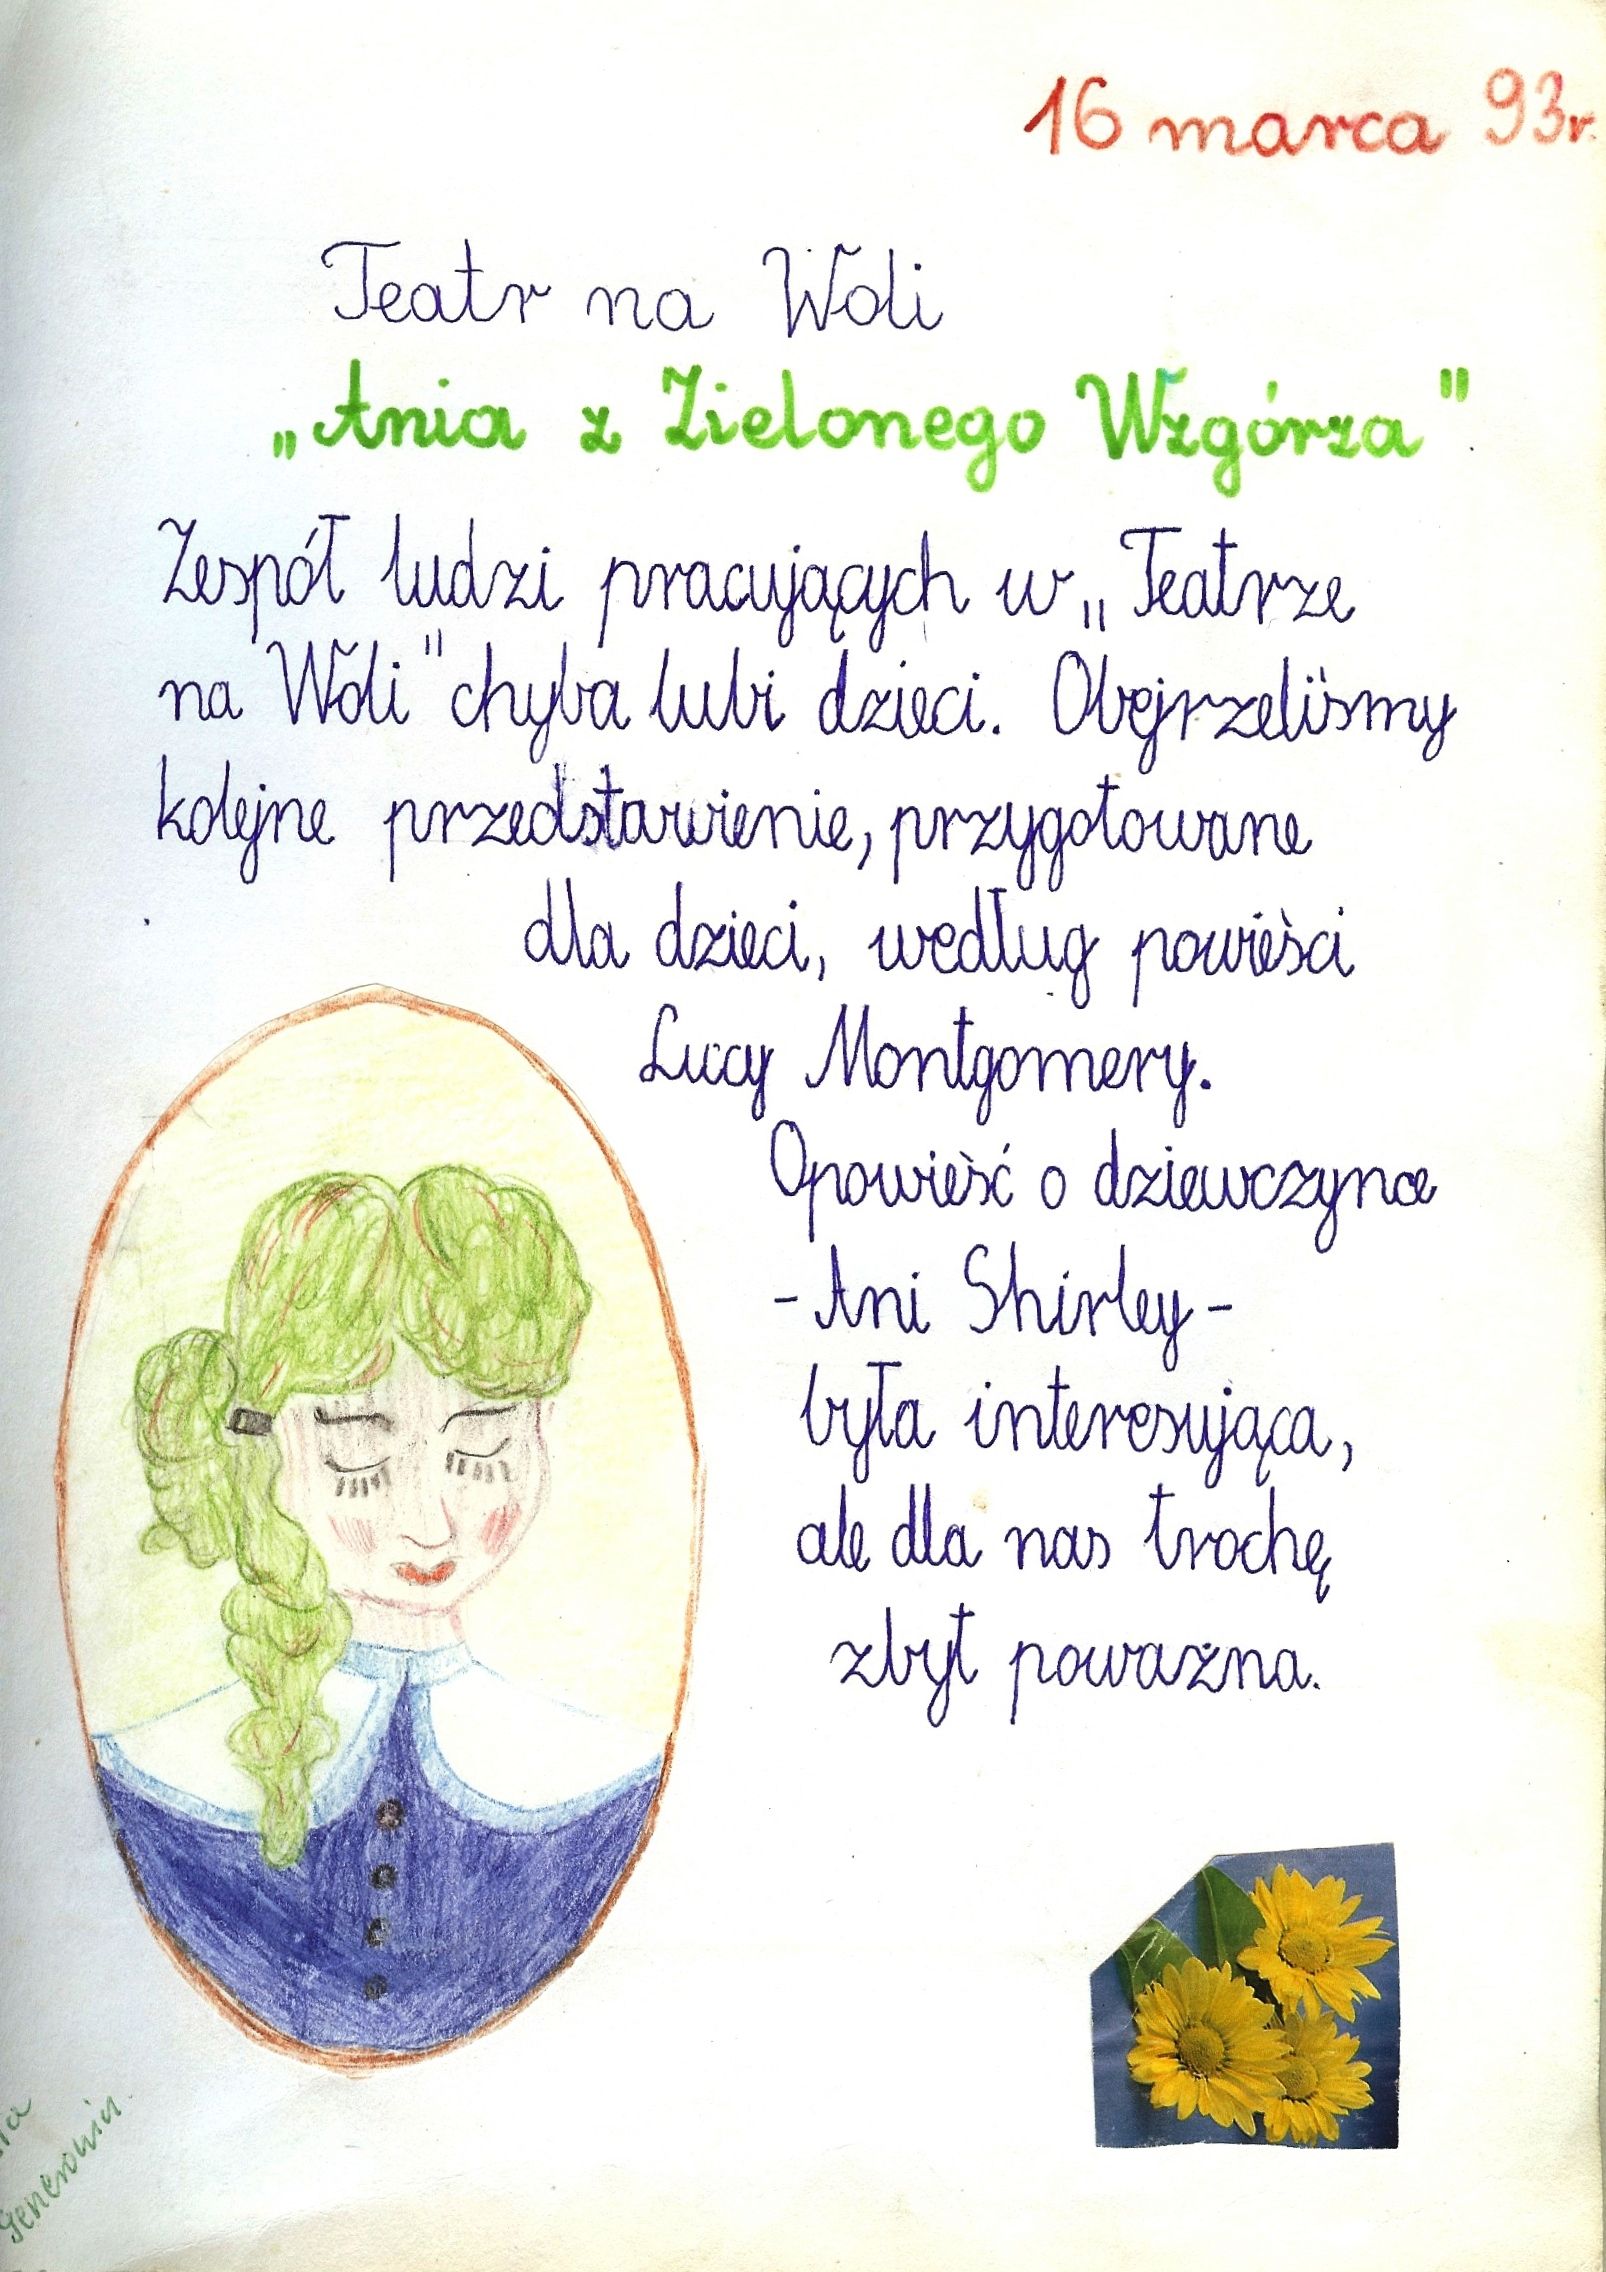 16 marca 93r.
Teatr na Woli
„Ania z Zielonego Wzgórza".
Zespół ludzi pracujących w „Teatrze
na Woli" chyba lubi dzieci. Obejrzeliśmy
kolejne przedstawienie, przygotowane
dla dzieci, według powieści
Lucy Montgomery.
Opowieść o dziewczynce
- Ani Shirley -
była interesująca,
ale dla nas trochę
zbyt poważna.